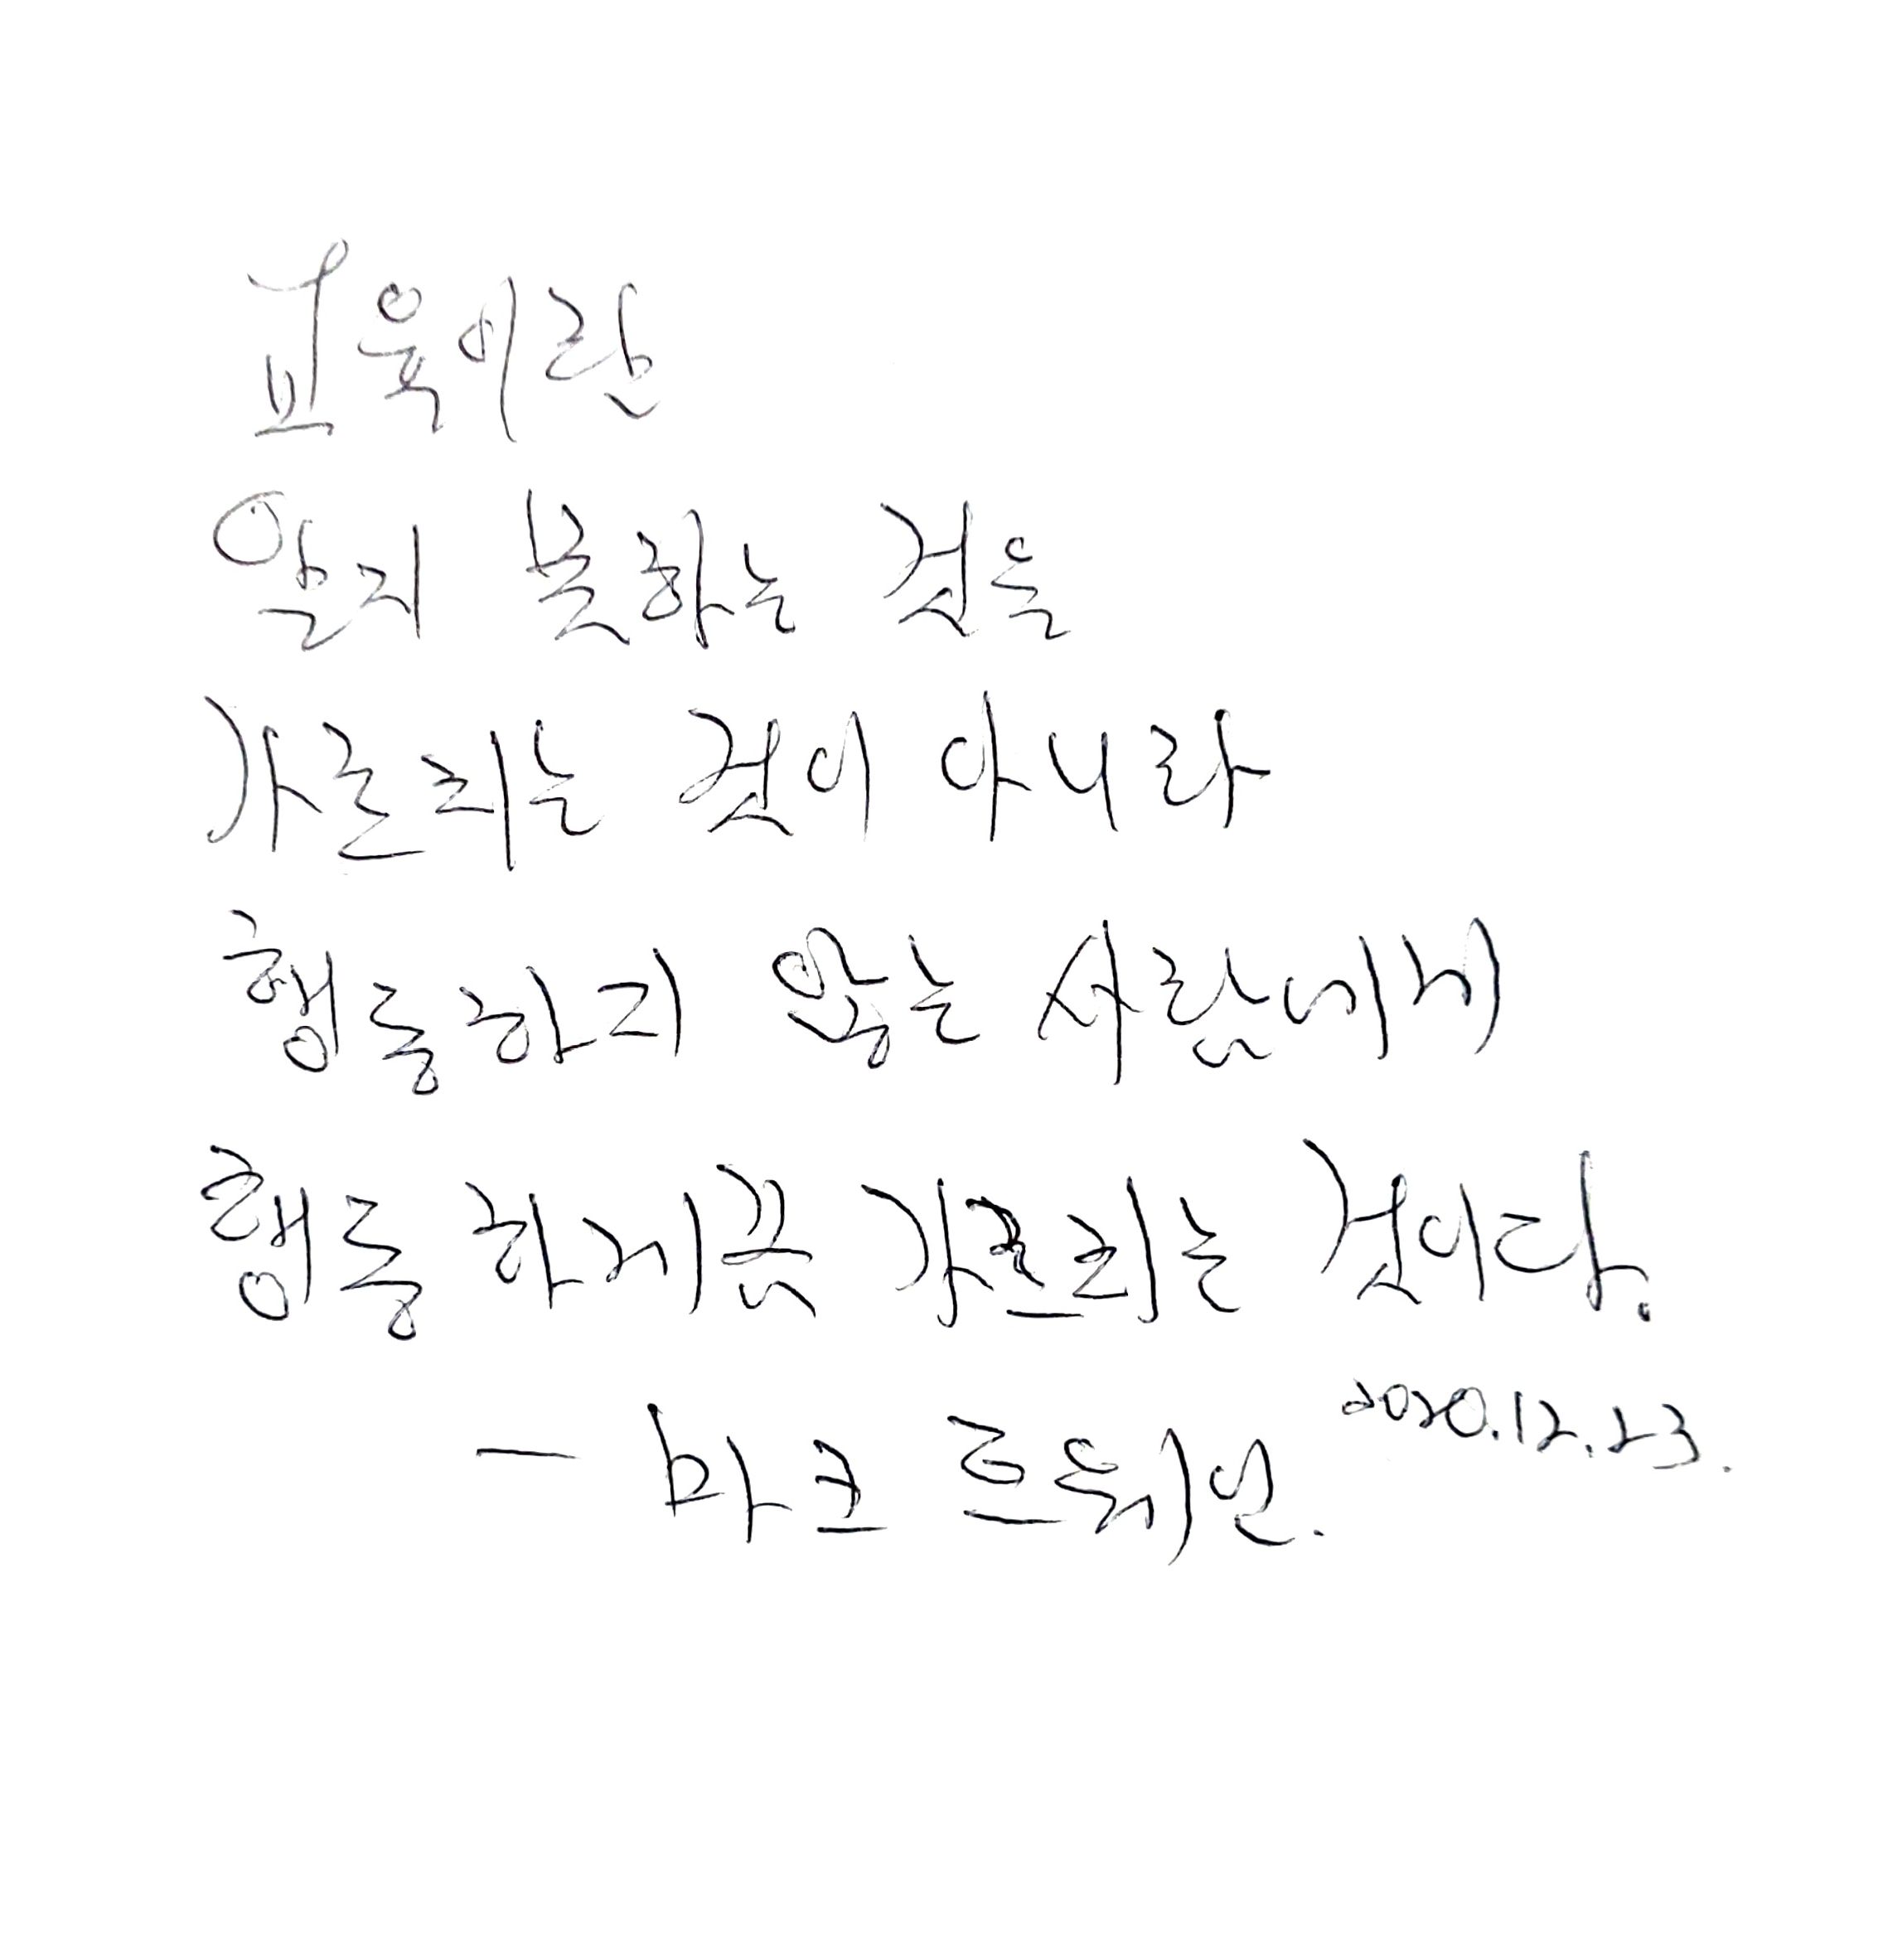 교육이란
알지 못하는 것을
가르치는 것이 아니라
행동하지 않는 사람에게
행동하게끔 가르치는 것이다.
2020.12.23.
- 마크 트웨인.